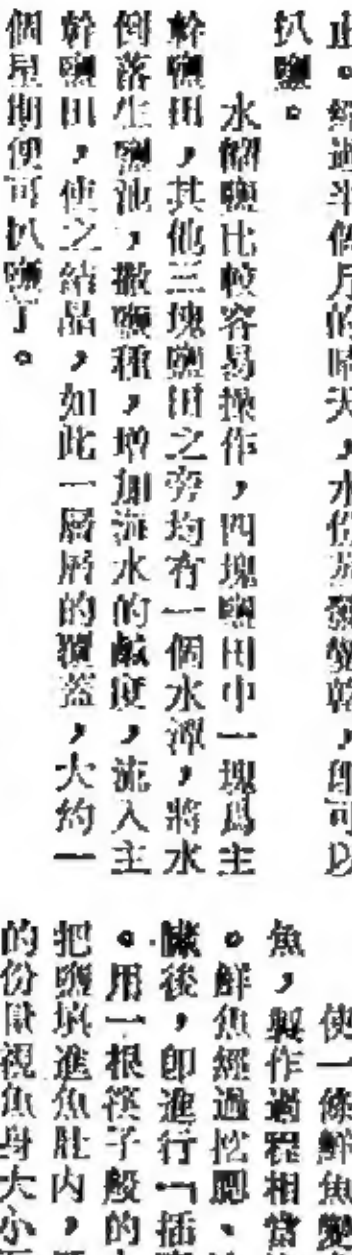 止。經過半個月的晴天，水份蒸發變乾，即可以
扒鹽。
水偕鹽比較容易操作，四塊鹽田中一塊爲主
幹鹽田，其他三塊鹽田之旁均有一個水潭，將水
倒落生鹽池，撒鹽種，增加海水的鹹度，流入主
幹鹽田，使之結晶，如此一層層的覆蓋，大約一
個星期便可扒鹽了。
使一條鮮魚變
魚，製作過程相當
。鮮魚經過挖腮、
臟後，即進行「插
。用一根筷子般的
把鹽填進魚肚內，
的份量視魚身大小